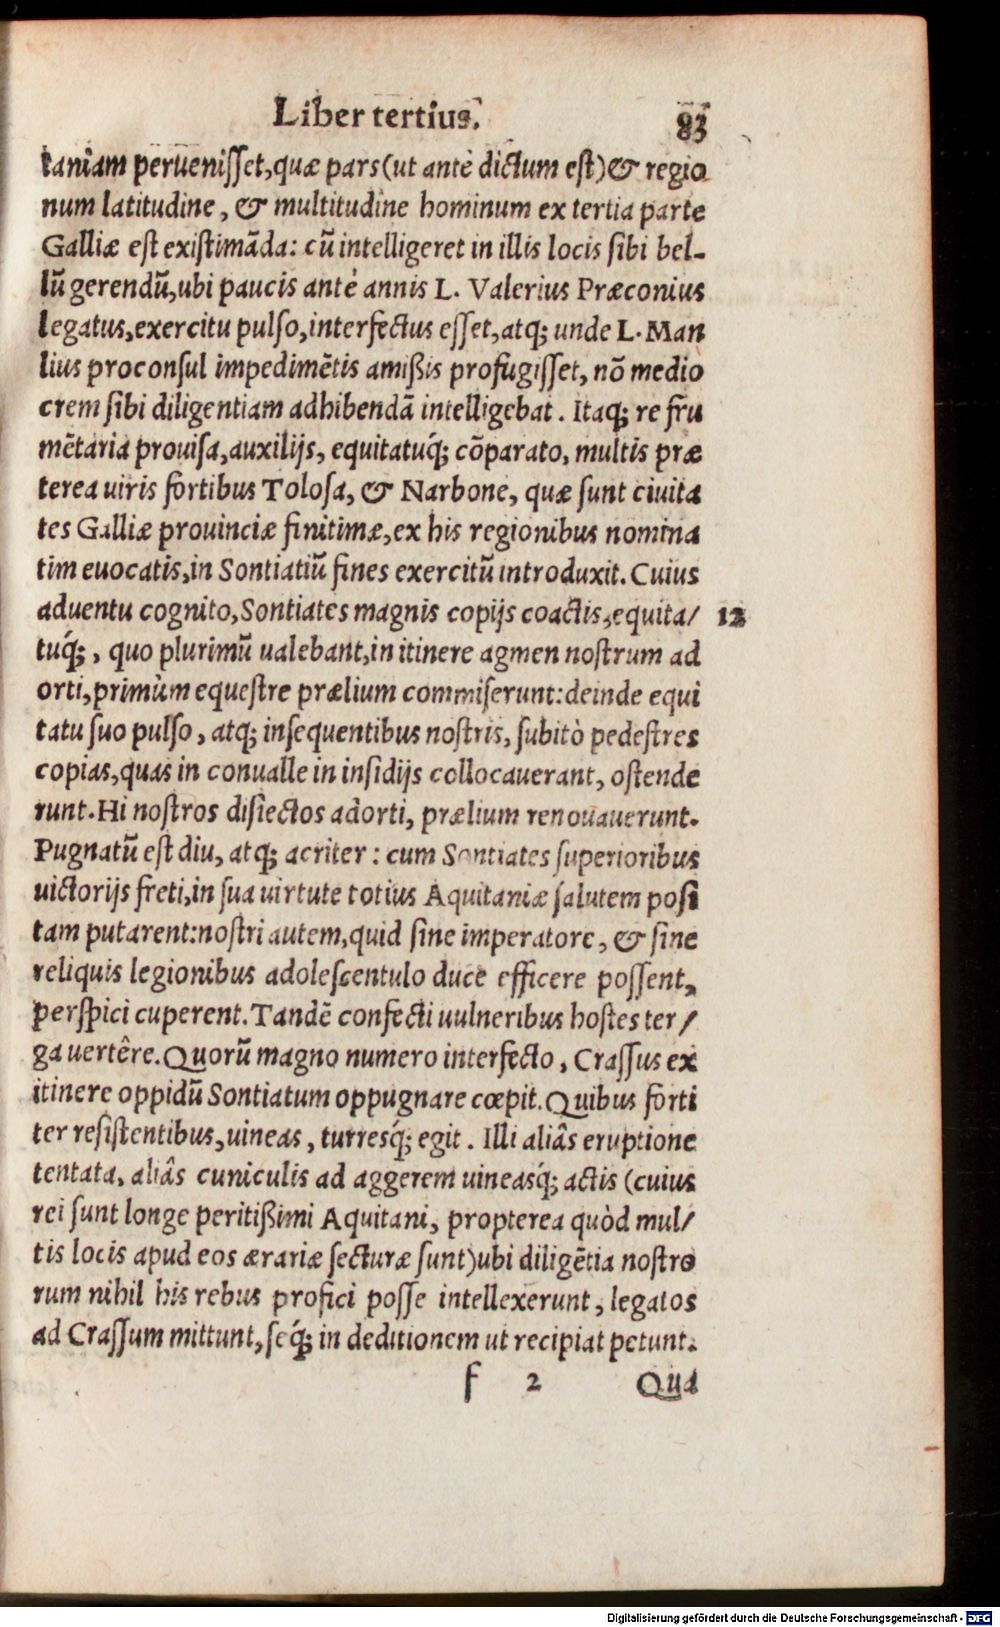 Liber tertius. 83
taniam peruenisset, quæ pars (ut antè dictum est) & regio
num latitudine, & multitudine hominum ex tertia parte
Galliæ est existimãda: cũ intelligeret in illis locis sibi bel-
lũ gerendũ, ubi paucis antè annis L. Valerius Præconius
legatus, exercitu pulso, interfectus esset, atq; unde L. Man
lius proconsul impedimẽtis amißis profugisset, nõ medio
crem sibi diligentiam adhibendã intelligebat. Itaq; re fru
mẽtaria prouisa, auxilijs, equitatuq́; cõparato, multis præ
terea uiris fortibus Tolosa, & Narbone, quæ sunt ciuita
tes Galliæ prouinciæ finitimæ, ex his regionibus nomina
tim euocatis, in Sontiatiũ fines exercitũ introduxit. Cuius
aduentu cognito, Sontiates magnis copijs coactis, equita/ 12
tuq́;, quo plurimũ ualebant, in itinere agmen nostrum ad
orti, primùm equestre prælium commiserunt: deinde equi
tatu suo pulso, atq; insequentibus nostris, subitò pedestres
copias, quas in conualle in insidijs collocauerant, ostende
runt. Hi nostros disiectos adorti, prælium renouauerunt.
Pugnatũ est diu, atq; acriter: cum Sontiates superioribus
uictorijs freti, in sua uirtute totius Aquitaniæ salutem posi
tam putarent: nostri autem, quid sine imperatore, & sine
reliquis legionibus adolescentulo duce efficere possent,
perspici cuperent. Tandẽ confecti uulneribus hostes ter/
ga uertêre. Quorũ magno numero interfecto, Crassus ex
itinere oppidũ Sontiatum oppugnare cœpit. Quibus forti
ter resistentibus, uineas, turresq́; egit. Illi aliâs eruptione
tentata, aliâs cuniculis ad aggerem uineasq́; actis (cuius
rei sunt longe peritißimi Aquitani, propterea quòd mul/
tis locis apud eos ærariæ secturæ sunt) ubi diligẽtia nostro
rum nihil his rebus profici posse intellexerunt, legatos
ad Crassum mittunt, seq́; in deditionem ut recipiat petunt.
f 2 Qua
Digitalisierung gefördert durch die Deutsche Forschungsgemeinschaft - DFG